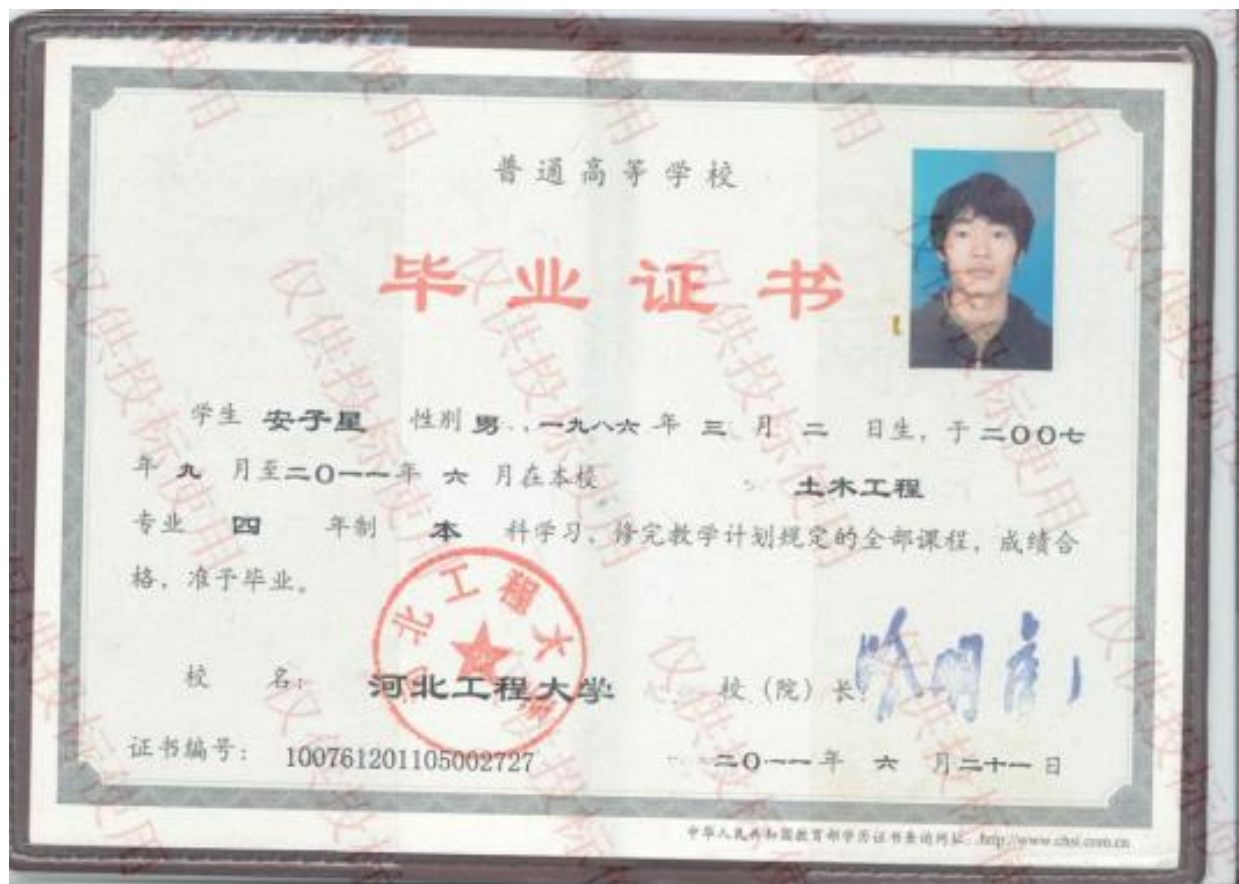 普通高等学校
毕业证书
学生 安子星 性别 男 ,一九八六 年 三 月 二 日生, 于 二〇〇七
年 九 月至二〇一一年 六 月在本校 土木工程
专业 四 年制 本 科学习, 修完教学计划规定的全部课程, 成绩合
格, 准予毕业。
河北工程大学
校 名: 河北工程大学 校 (院) 长
证书编号: 100761201105002727 二〇一一 年 六 月二十一 日
中华人民共和国教育部学历证书查询网址: http://www.chsi.com.cn
仅供投标使用